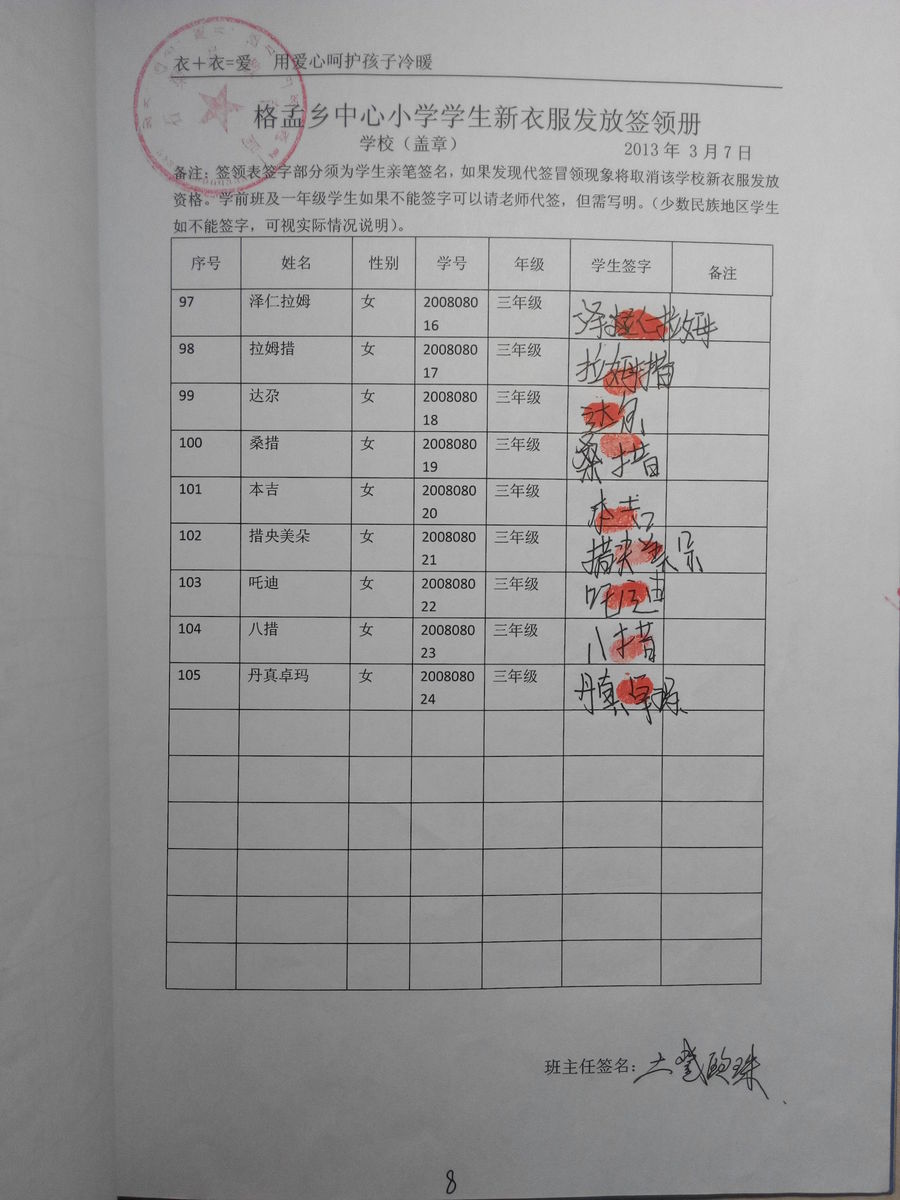 衣＋衣=爱 用爱心呵护孩子冷暖
格孟乡中心小学学生新衣服发放签领册
学校（盖章） 2013年 3月7日
备注：签领表签字部分须为学生亲笔签名，如果发现代签冒领现象将取消该学校新衣服发放
资格。学前班及一年级学生如果不能签字可以请老师代签，但需写明。（少数民族地区学生
如不能签字，可视实际情况说明）。
序号 姓名 性别 学号 年级 学生签字 备注
97 泽仁拉姆 女 2008080 三年级
16 泽仁拉姆
98 拉姆措 女 2008080 三年级
17 拉姆措
99 达尕 女 2008080 三年级
18 达尕
100 桑措 女 2008080 三年级
19 桑措
101 本吉 女 2008080 三年级
20 本吉
102 措央美朵 女 2008080 三年级
21 措央美朵
103 吒迪 女 2008080 三年级
22 吒迪
104 八措 女 2008080 三年级
23 八措
105 丹真卓玛 女 2008080 三年级
24 丹真卓玛
班主任签名：
8